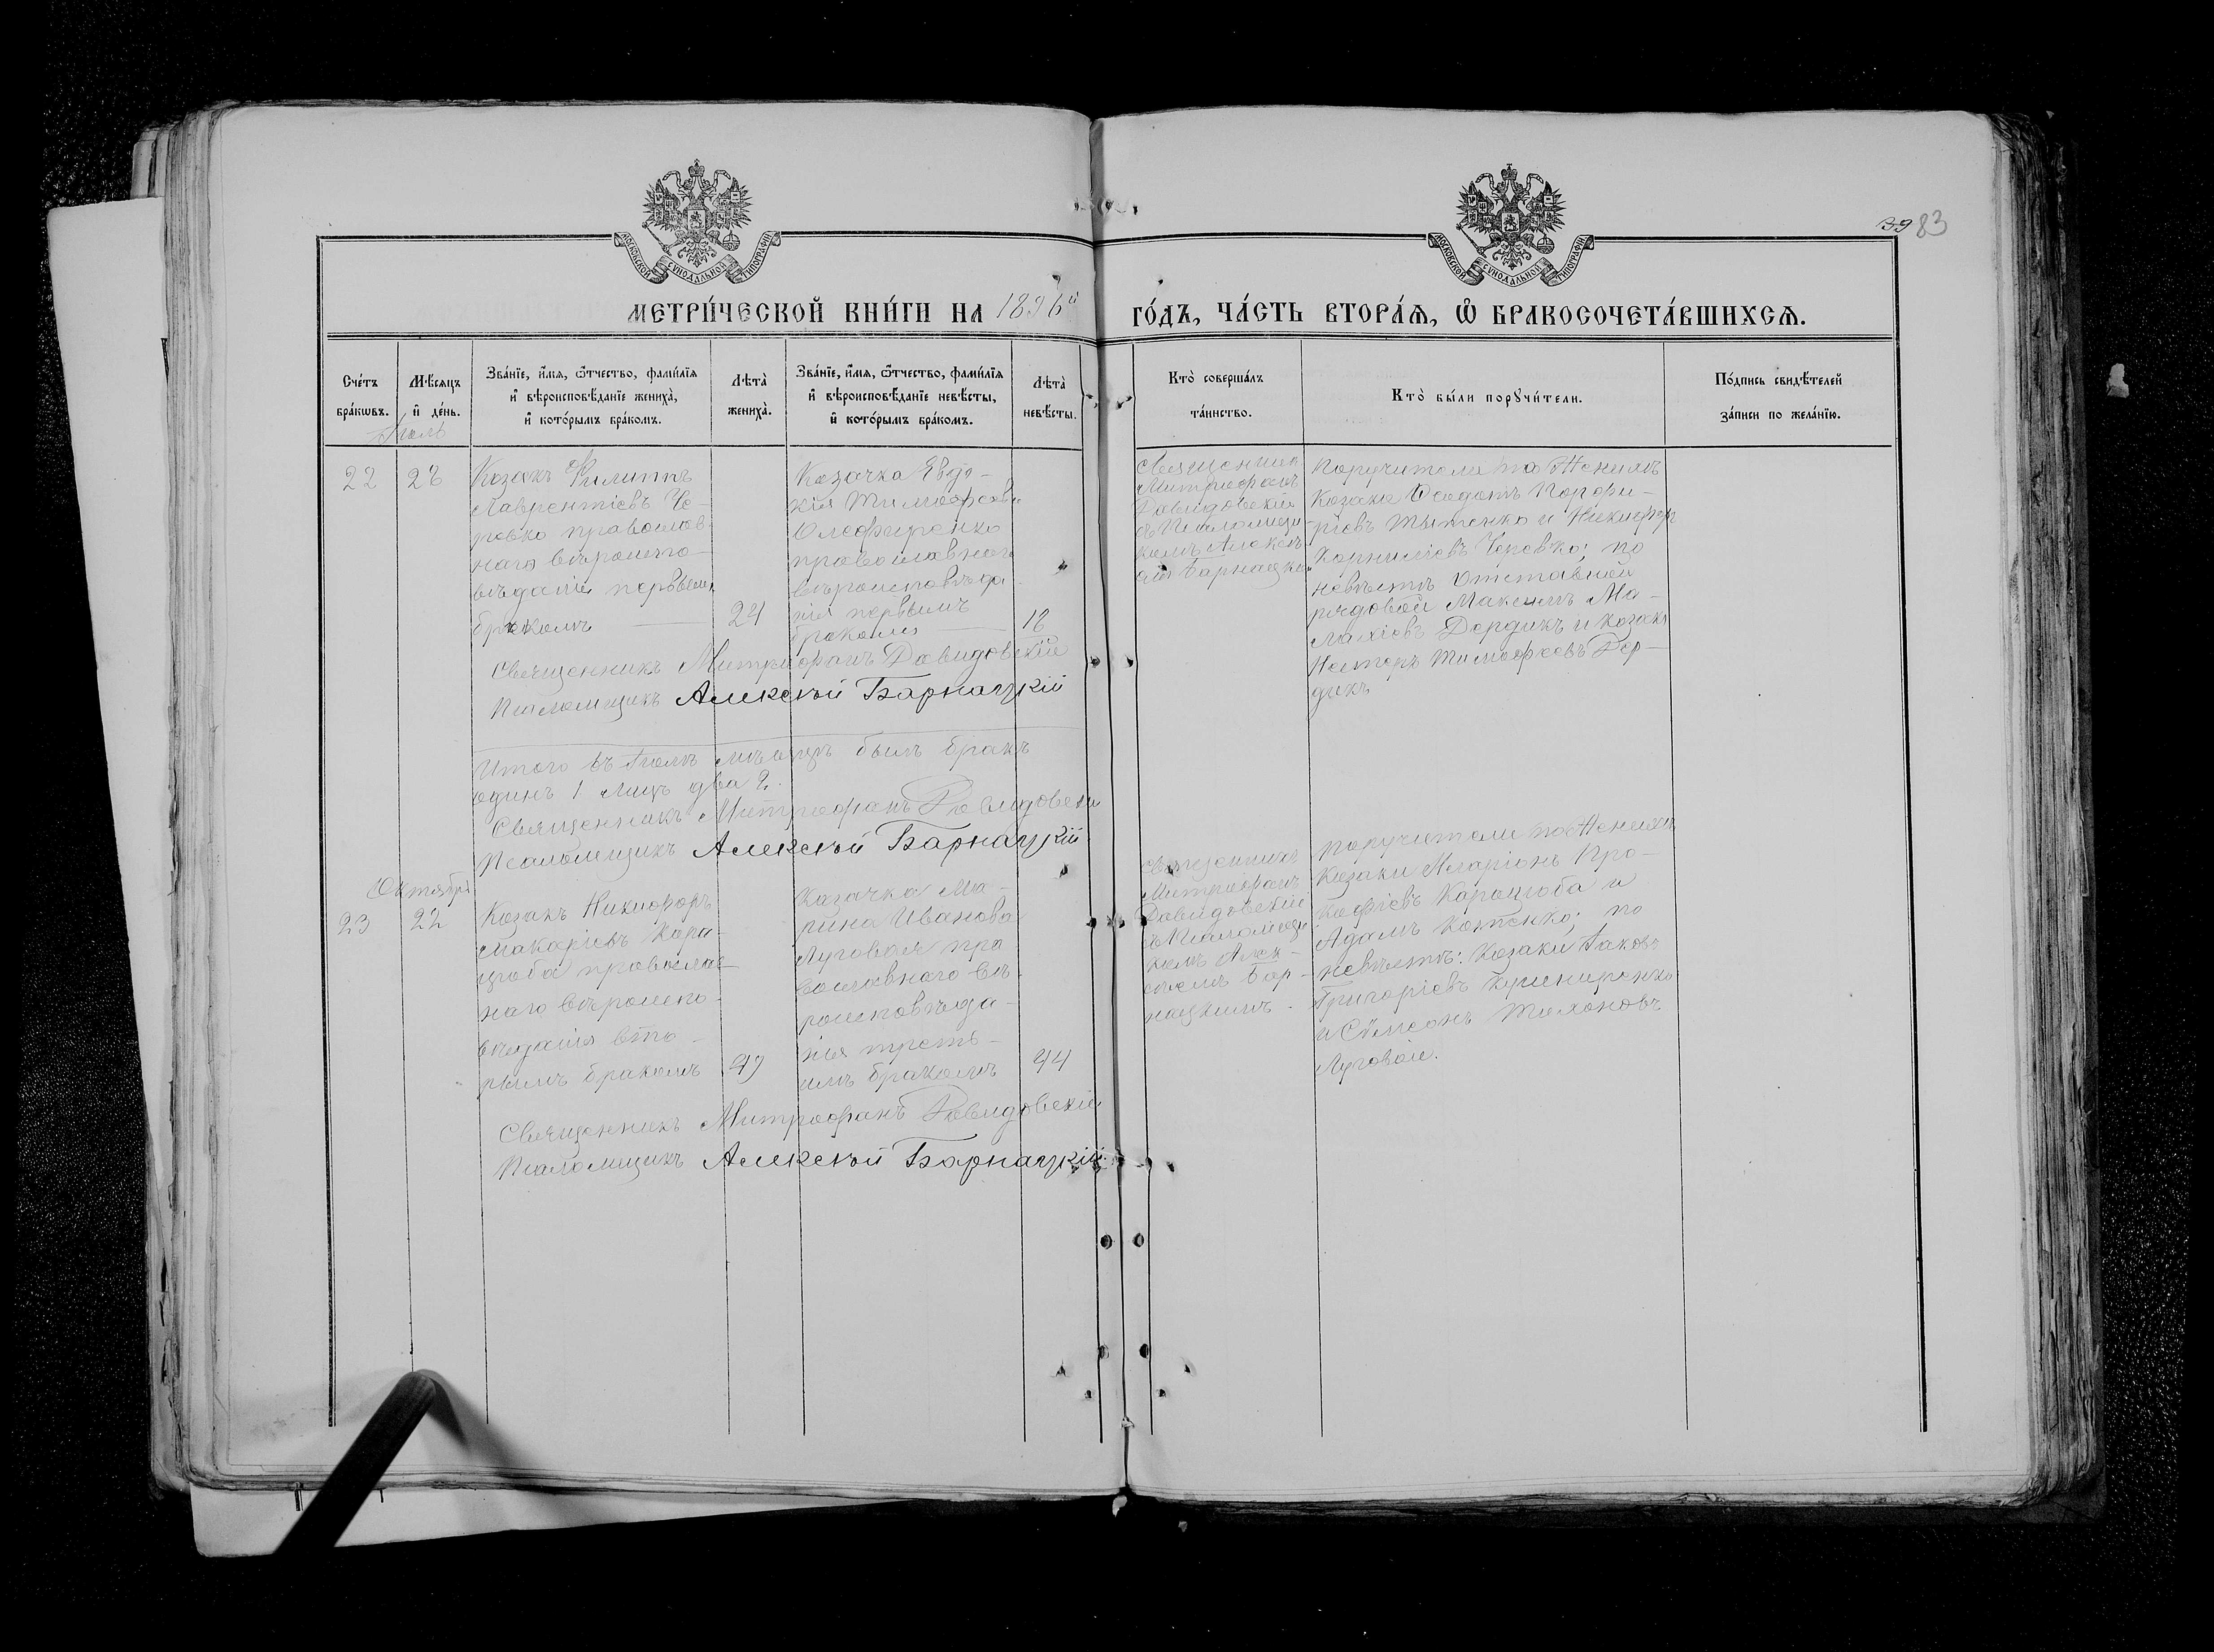 МОСКОВСКОЙ СѴНОДАЛЬНОЙ ТИПОГРАФІИ
МОСКОВСКОЙ СѴНОДАЛЬНОЙ ТИПОГРАФІИ
39 83
МЕТРИ́ЧЕСКОЙ КНИ́ГИ НА 1896й ГО́ДЪ, ЧА́СТЬ ВТОРА́Ѧ, Ѽ БРАКОСОЧЕТА́ВШИХСѦ.
Сче́тъ
бра́кѡвъ.
Мѣ́сѧцъ
и҆ де́нь.
Зва́нїе, и҆́мѧ, ѻ҆́тчество, фами́лїѧ
и҆ вѣроисповѣ́данїе жениха̀,
и҆ кото́рымъ бра́комъ.
Лѣ́та
жениха̀.
Зва́нїе, и҆́мѧ, ѻ҆́тчество, фами́лїѧ
и҆ вѣроисповѣ́данїе невѣ́сты,
и҆ кото́рымъ бра́комъ.
Лѣ́та
невѣ́сты.
Кто̀ соверша́лъ
та́инство.
Кто̀ бы́ли порꙋчи́тели.
По́дпись свидѣ́телей
за́писи по жела́нїю.
Іюль
22
28
Козакъ Филиппъ
Лаврентіевъ Че-
ревко православ-
наго вѣроиспо-
вѣданія первымъ
бракомъ
24
Козачка Евдо-
кія Тимофеева
Олефиренко
православнаго
вѣроисповѣда-
нія первымъ
бракомъ
18
Священник
Митрофанъ
Давидовскій
съ Псаломщи-
комъ Алексѣ-
емъ Барнацким
Поручители по Женихѣ
Козаки Федотъ Порфи-
ріевъ Тытенко и Никифоръ
Корниліевъ Черевко; по
невѣстѣ Отставной
рядовой Максимъ Ма-
лахіевъ Дердикъ и козакъ
Несторъ Тимофеевъ Дер-
дикъ
Священникъ Митрофанъ Давидовскій
Псаломщикъ Алексѣй Барнацкій
Итого въ Іюлѣ мѣсяцѣ былъ бракъ
одинъ 1 лицъ два 2.
Священникъ Митрофанъ Давидовскій
Псаломщикъ Алексѣй Барнацкій
Октябрь
23
22
Козакъ Никифоръ
Макаріевъ Кара-
цюба православ-
наго вѣроиспо-
вѣданія вто-
рымъ бракомъ
47
Козачка Ма-
рина Иванова
Луговая пра
вославнаго вѣ-
роисповѣда-
нія треть-
имъ бракомъ
44
Священникъ
Митрофанъ
Давидовскій
съ Псаломщи
комъ Алек-
сѣемъ Бар-
нацкимъ.
Поручители по Женихѣ
Козаки Иларіонъ Про-
кофіевъ Карацюба и
Адамъ Коптенко; по
невѣстѣ: Козаки Іаковъ
Григоріевъ Кушниренко
и Сѵмеонъ Тихоновъ
Луговой.
Священникъ Митрофанъ Давидовскій
Псаломщикъ Алексѣй Барнацкій